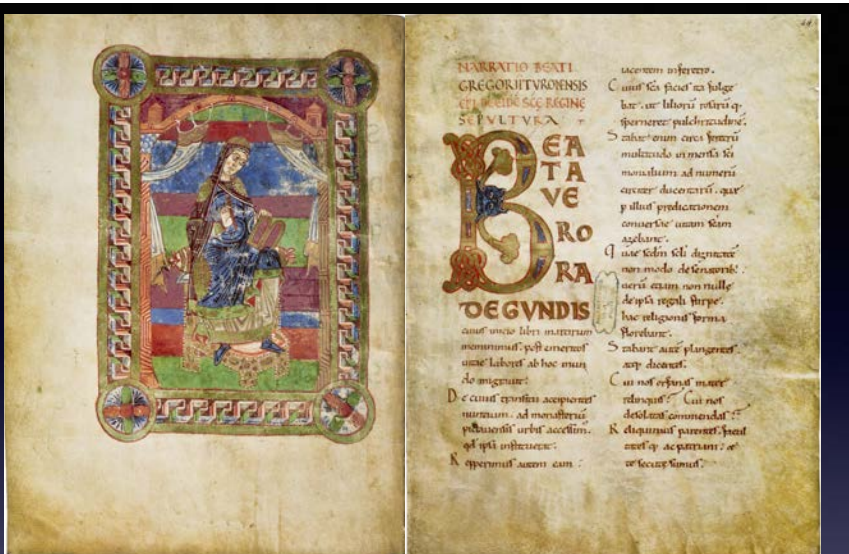 NARRATIO BEATI
GREGORII TVRONENSIS
SCE REGINE
SEPVLTVRA
BEA
TA
VE
RO
RA
DEGVNDIS
cuius inicio libri martirum
meminimus. post emeritos
uitae labores ab hoc mun
do migrauit.
De cuius transitu accipientes
nuntium. ad monasteriu
pictauensis urbis accessim.
qd ipsa instituerat.
Repperimus autem eam
iacentem in feretro.
Cuius sca facies ita fulge
bat. ut liliorū rosarū q
sperneret pulchritudinē.
Stabat enim circa feretrū
multitudo inmensa sci
monialium ad numerū
circiter ducentarū. quae
p illius predicationem
conuersae uitam scam
agebant.
Quae scdm scli dignitatē
non modo de senatorib.
uerū etiam non nulle
de ipsa regali stirpe.
hac religionis forma
florebant.
Stabant autē plangentes.
atq dicentes.
Cui nos orfanas mater
relinquis? Cui nos
desolatas commendas?
Reliquimus parentes. facul
tates q ac patriam. &
te secute sumus.